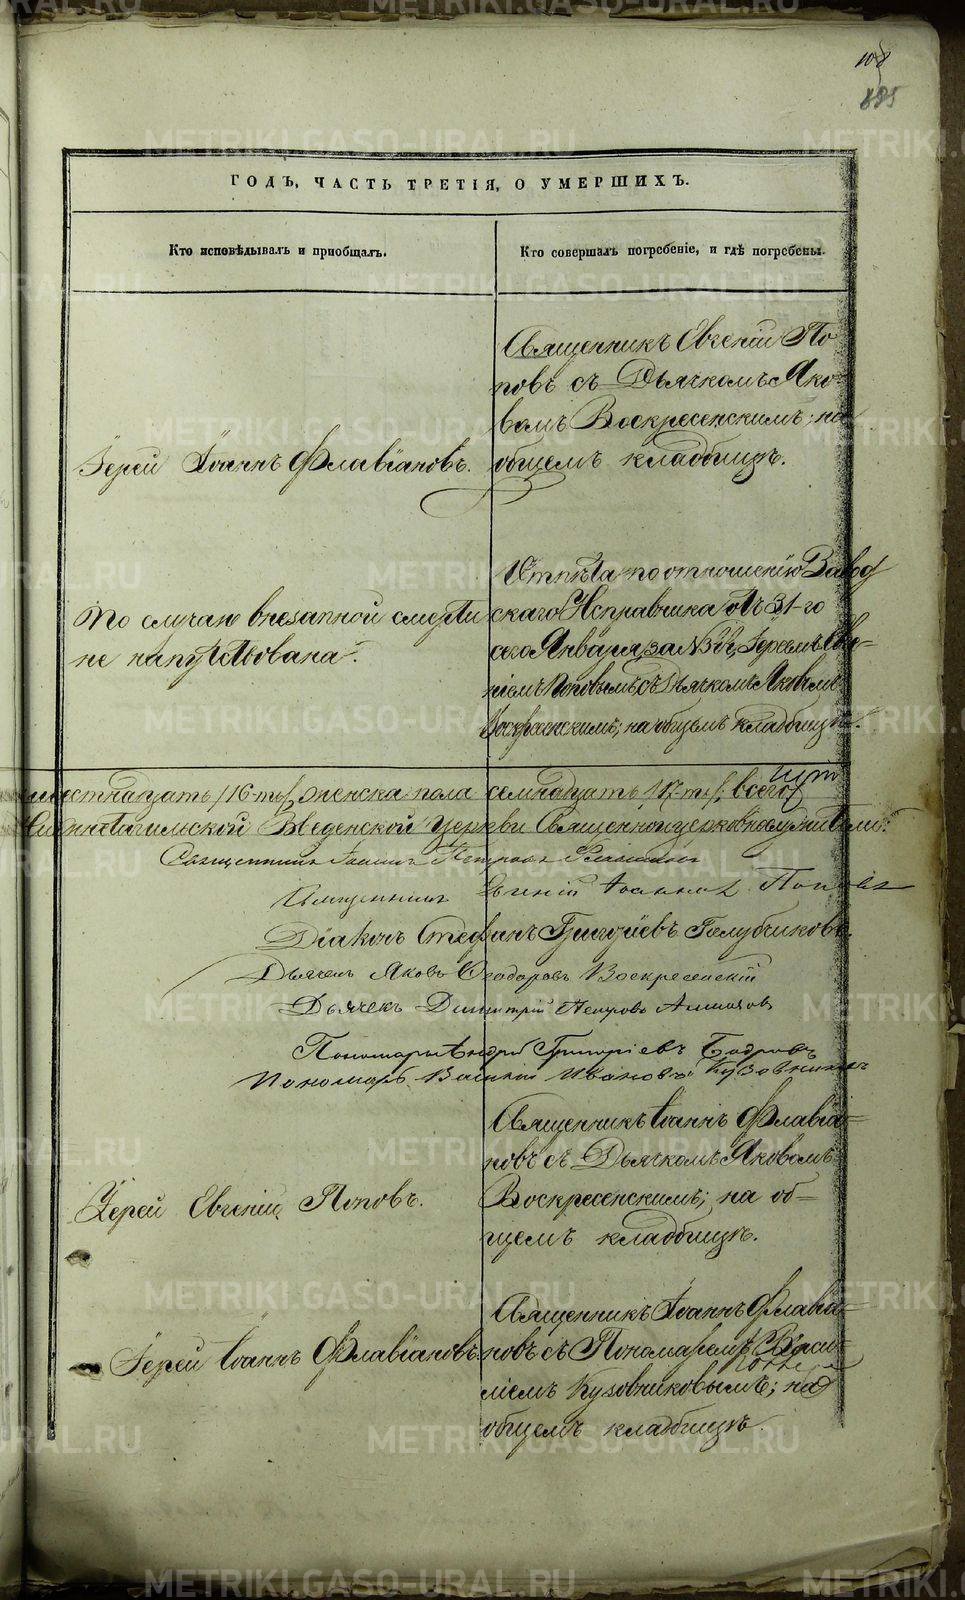 METRIKI.GASO-URAL.RU
108
885
ГОДЪ, ЧАСТЬ ТРЕТІЯ, О УМЕРШИХЪ.
Кто исповѣдывалъ и приобщалъ.
Кто совершалъ погребеніе, и гдѣ погребены.
Іерей Іоаннъ Флавіановъ.
Священникъ Евгеній По
повъ съ Дьячкомъ Яко-
вомъ Воскресенскимъ; на
общемъ кладбищѣ.
По случаю внезапной смерти
не напутствована.
Отпѣта по отношенію Завод
скаго Исправника отъ 31-го
сего Января, за № Іереемъ Евге-
ніемъ Поповымъ съ Дьячкомъ Яковомъ
Воскресенскимъ; на общемъ кладбищѣ.
шестнадцать /16-ть/, женска пола семнадцать /17-ть/; всего
Нижнетагильской Введенской церкви Священноцерковнослужители:
Священникъ Іоаннъ Петровъ Флавіановъ
Священникъ Евгеній Іоанновъ Поповъ
Діаконъ Стефанъ Григорьевъ Голубчиковъ.
Дьячекъ Яковъ Феодоровъ Воскресенскій
Дьячекъ Димитрій Петровъ
Пономарь Андрей Григоріевъ Бодровъ
Пономарь Василій Ивановъ Кузовниковъ
Іерей Евгеній Поповъ.
Священникъ Іоаннъ Флавіа-
новъ съ Дьячкомъ Яковомъ
Воскресенскимъ; на об-
щемъ кладбищѣ.
Іерей Іоаннъ Флавіановъ.
Священникъ Іоаннъ Флавіа-
новъ съ Пономаремъ Васи-
ліемъ Кузовниковымъ; на
общемъ кладбищѣ.